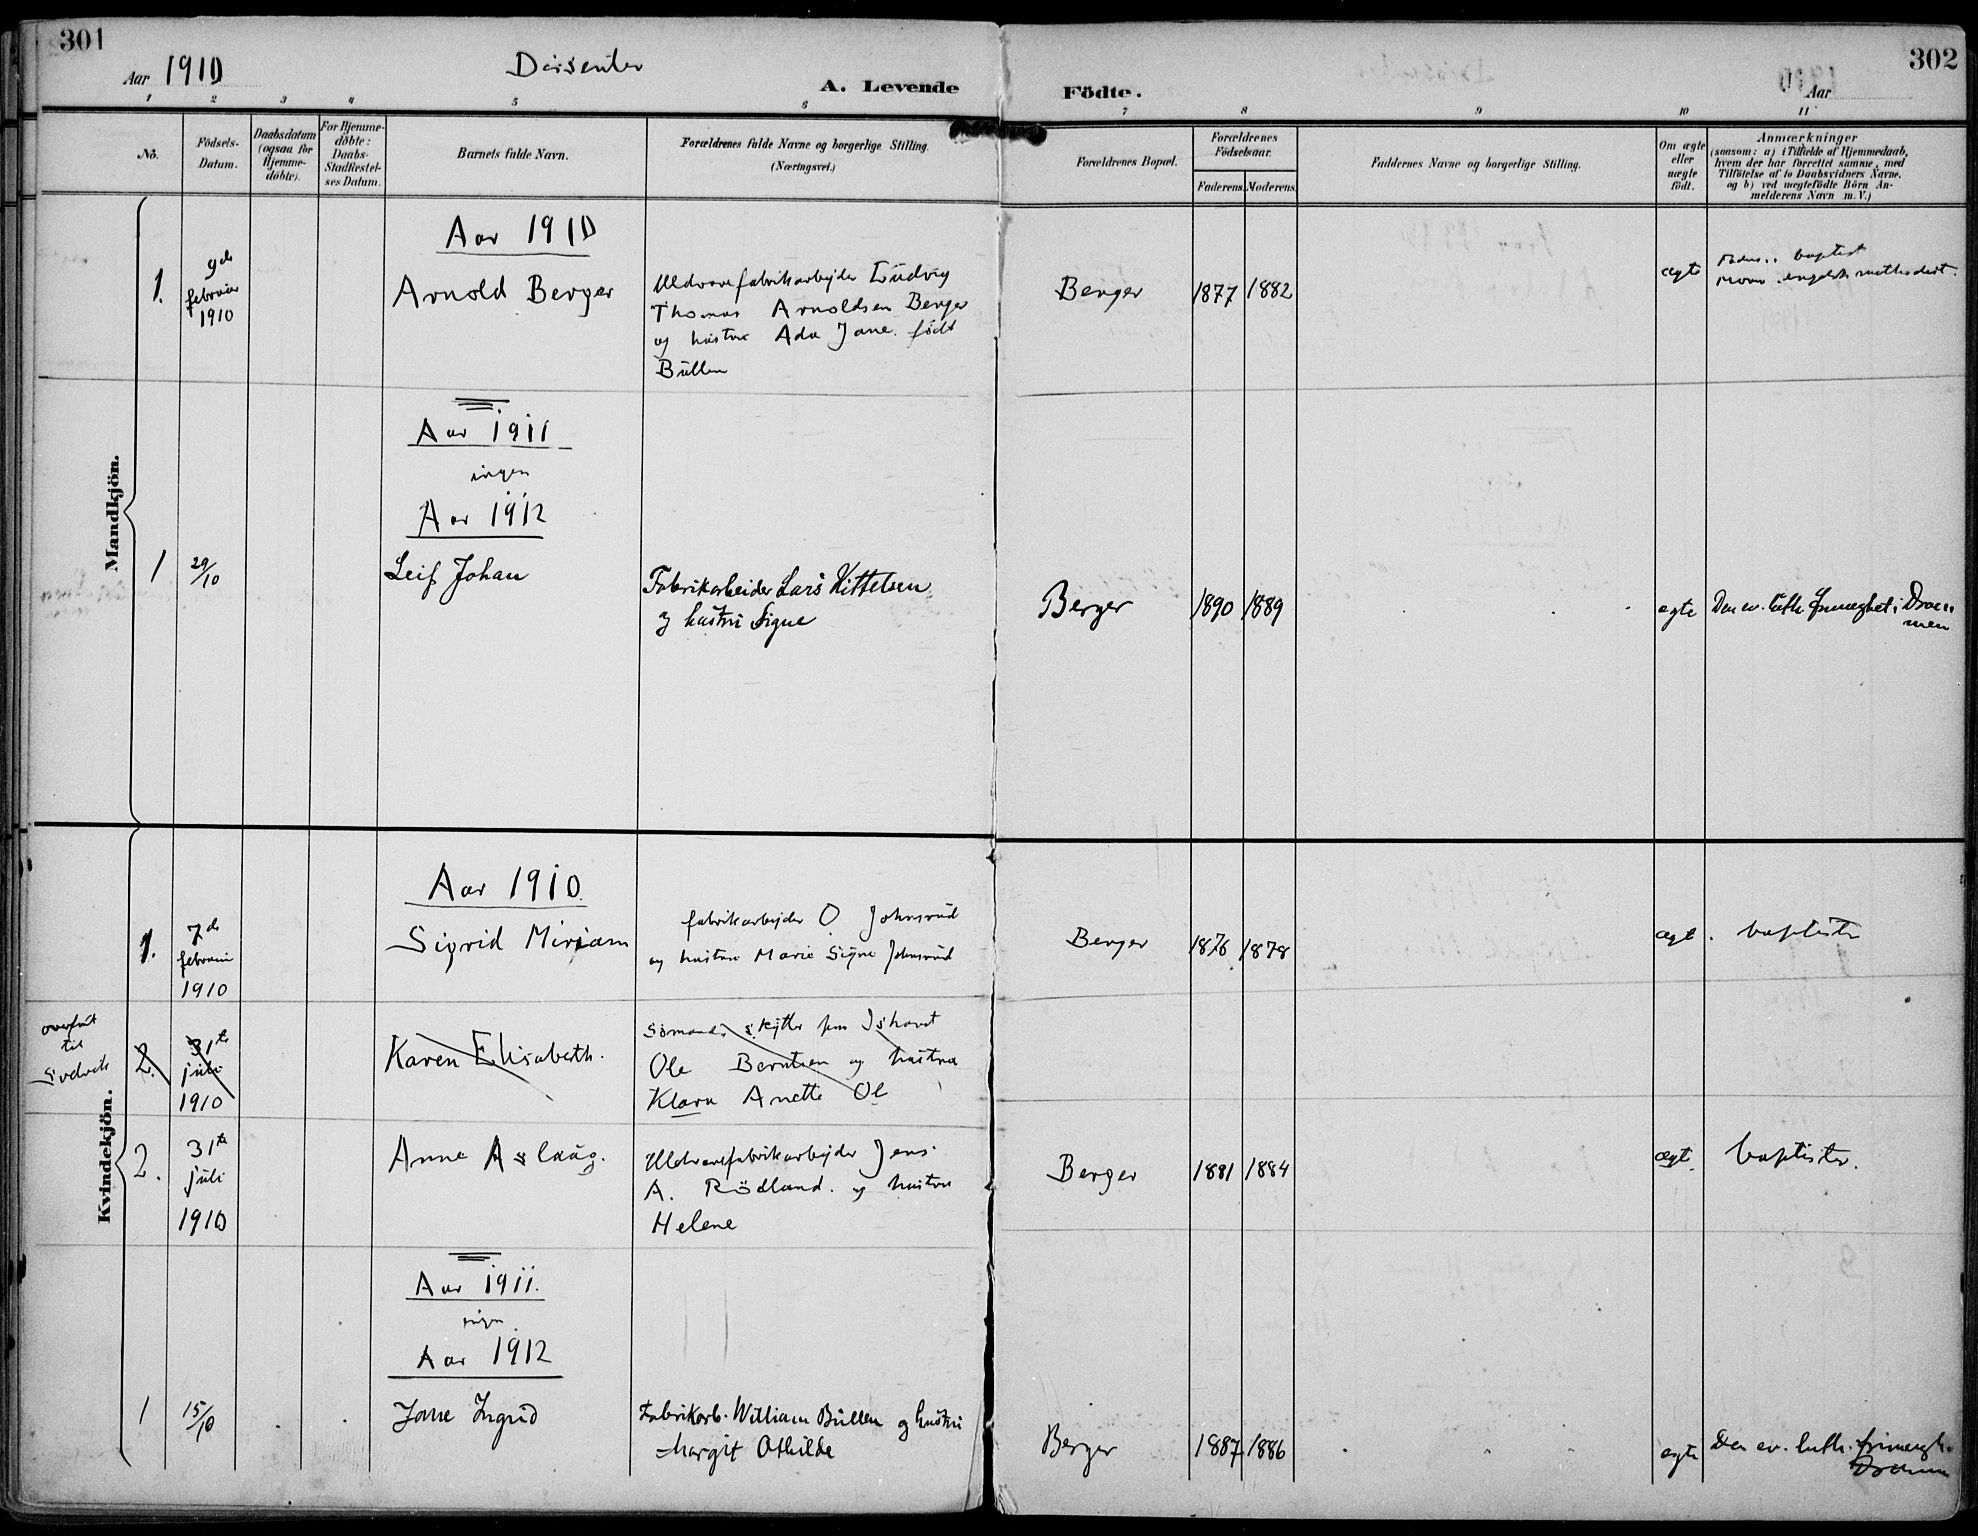 301
302
Aar 1910
Dissenter
A. Levende
Födte.
Aar
1
2
3
4
5
6
7
8
9
10
11
No.
Födsels-
Datum.
Daabsdatum
(ogsaa for
Hjemme-
döbte).
For Hjemme-
döbte:
Daabs-
Stadfestel-
ses Datum.
Barnets fulde Navn.
Forældrenes fulde Navne og borgerlige Stilling.
(Næringsvei.)
Forældrenes Bopæl.
Forældrenes
Födselsaar.
Faderens.
Moderens.
Faddernes Navne og borgerlige Stilling.
Om ægte
eller
uægte
födt.
Anmærkninger
(saasom: a) i Tilfælde af Hjemmedaab,
hvem der har forrettet samme, med
Tilföielse af to Daabsvidners Navne.
og b) ved uægtefödte Börn An-
melderens Navn m. V.)
Mandkjön.
Aar 1910
1.
9de
februar
1910
Arnold Berger
Uldvarefabrikarbejder Ludvig
Thomas Arnoldsen Berger
og hustru Ada Jane født
Bullen
Berger
1877
1882
ægte
baptist
engelsk methodist.
Aar 1911
ingen
Aar 1912
1
29/10
Leif Johan
Fabrikarbeider Lars Kittelsen
og hustru Signe
Berger
1890
1889
ægte
Den ev. luth. frimeghet i Dram-
men
Kvindekjön.
Aar 1910.
1.
7de
februar
1910
Sigrid Miriam
fabrikarbejder O Johnsrud
og hustru Marie Signe Johnsrud
Berger
1876
1878
ægt.
baptister
overført
til
Svelvik
2.
31te
juli
1910
Karen Elisabeth.
Sömand, skytter paa Ishavet
Ole Berntsen og hustru
Klara Anette Ol
2.
31te
juli
1910
Anne Aslaug.
Uldvarefabrikarbejder Jens
A. Rödland. og hustru
Helene
Berger
1881
1884
ægt.
baptister.
Aar 1911.
ingen
Aar 1912
1
15/10
Jane Ingrid
Fabrikarb. William Bullen og hustru
Margit Othilde
Berger
1887
1886
ægte
Den ev. luth. frimeigh.
Drammen